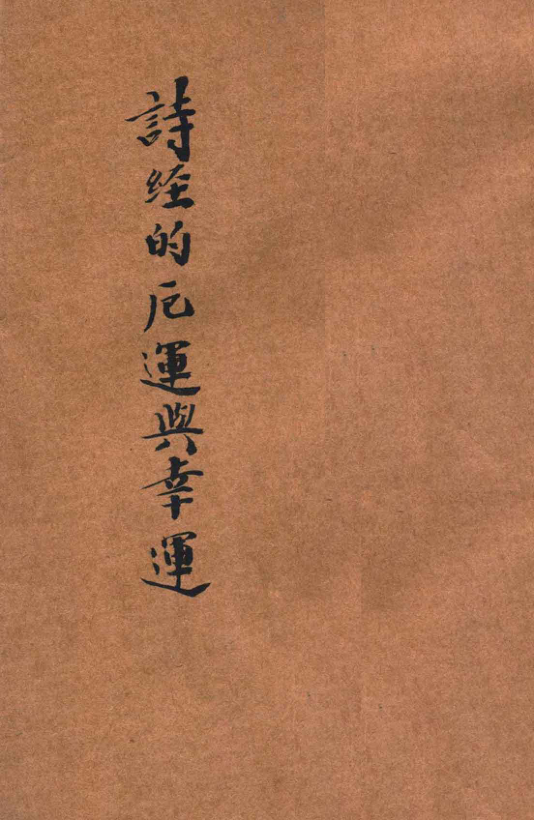 詩经的厄運與幸運